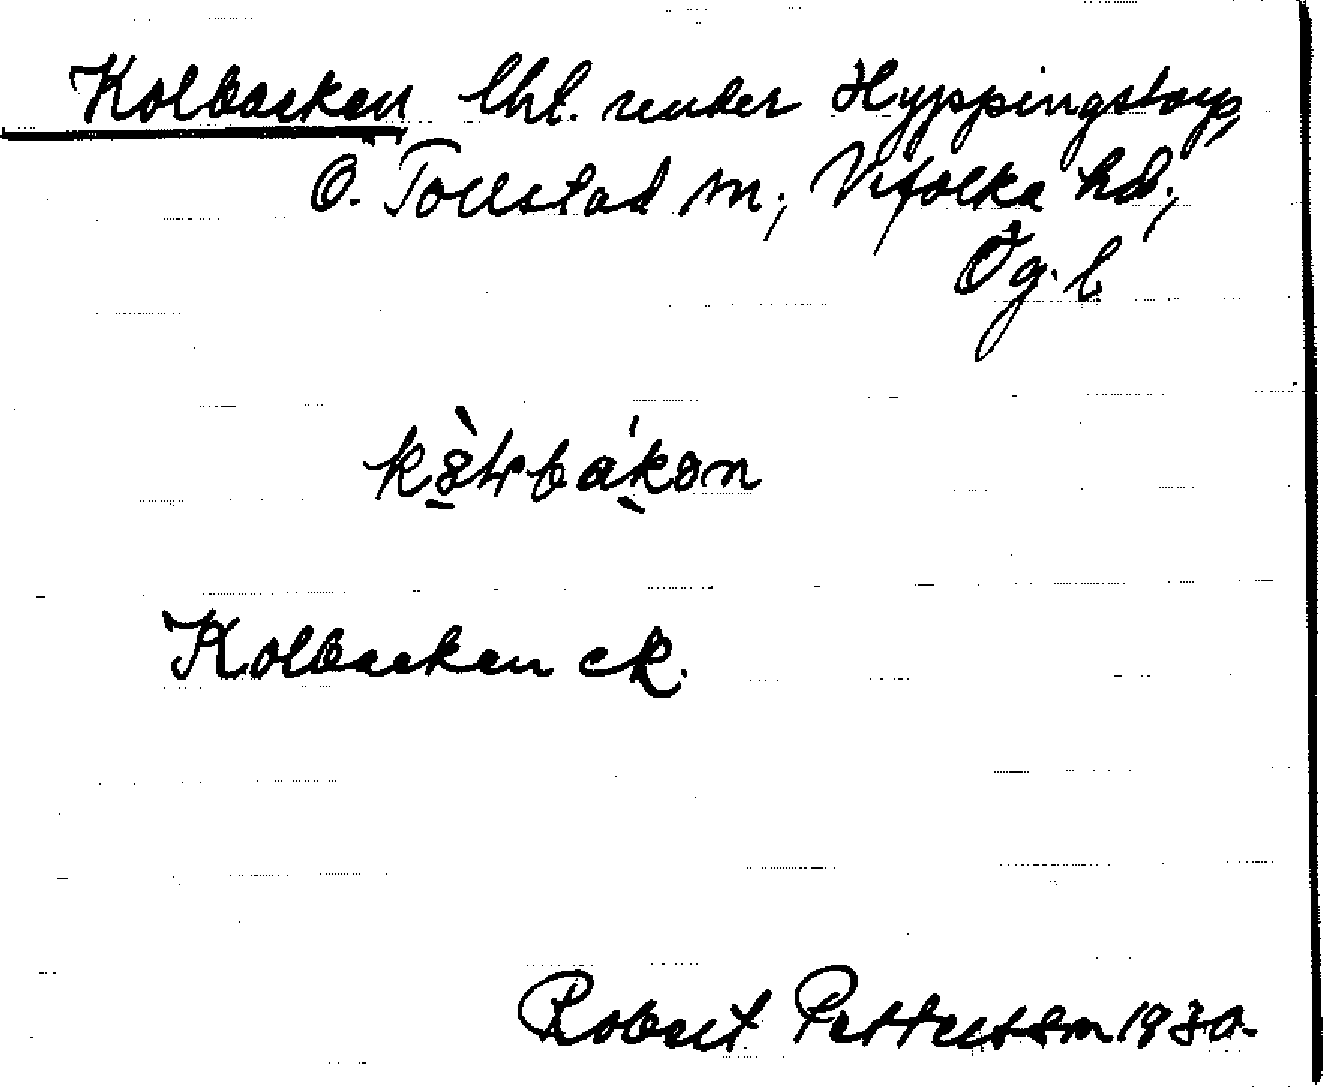 Kolbacken lht. under Hyppingstorp,
Ö. Tollstad sn; Vifolka hd;
Ög. l
Kolbacken ek.
Robert Pettersson 1930.